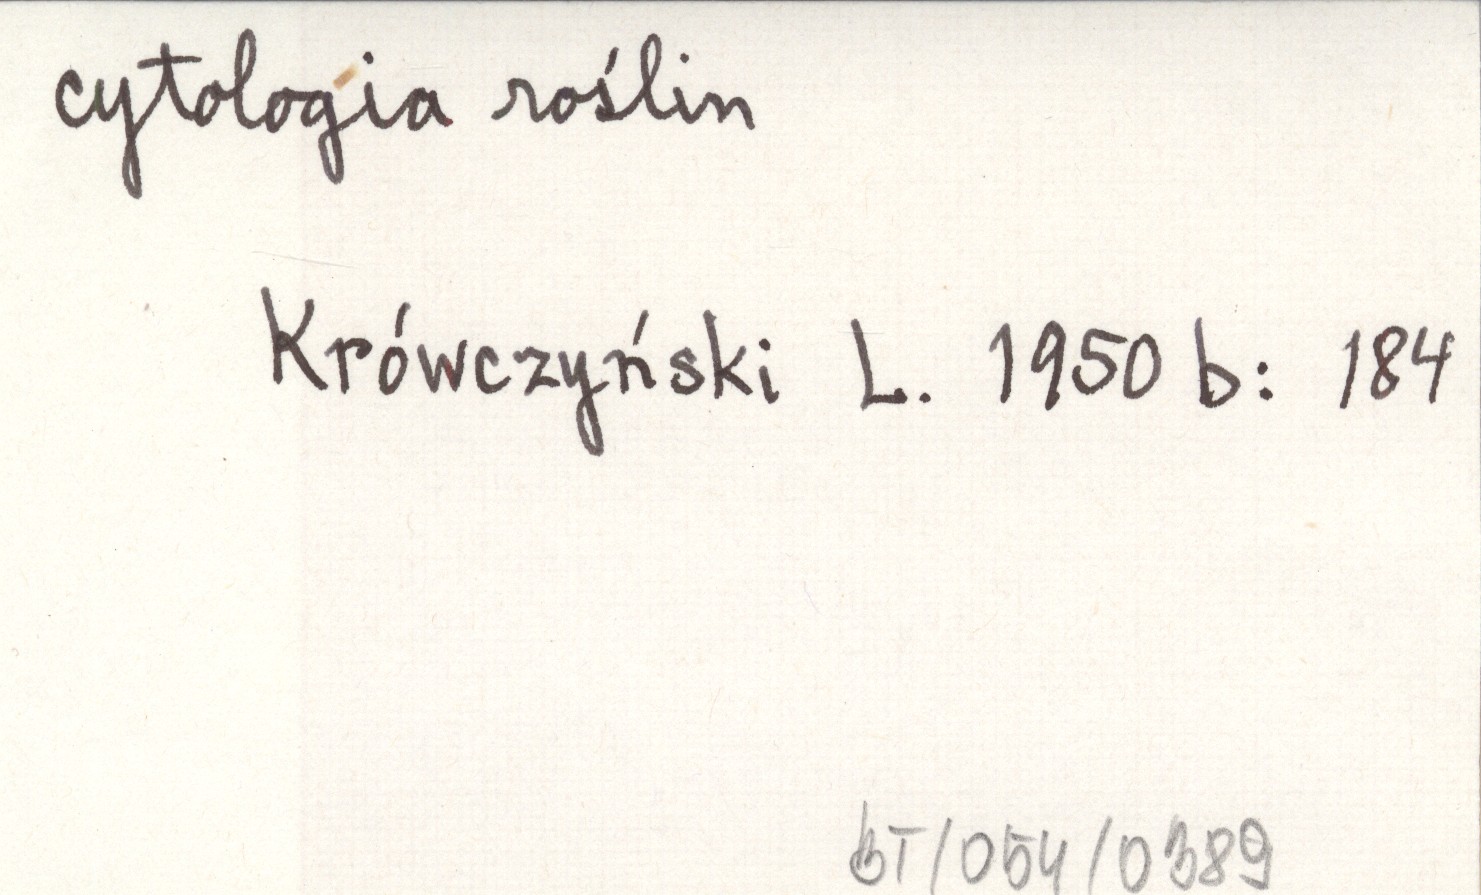 cytologia roślin
Krówczyński L. 1950 b: 184
BT/054/0389